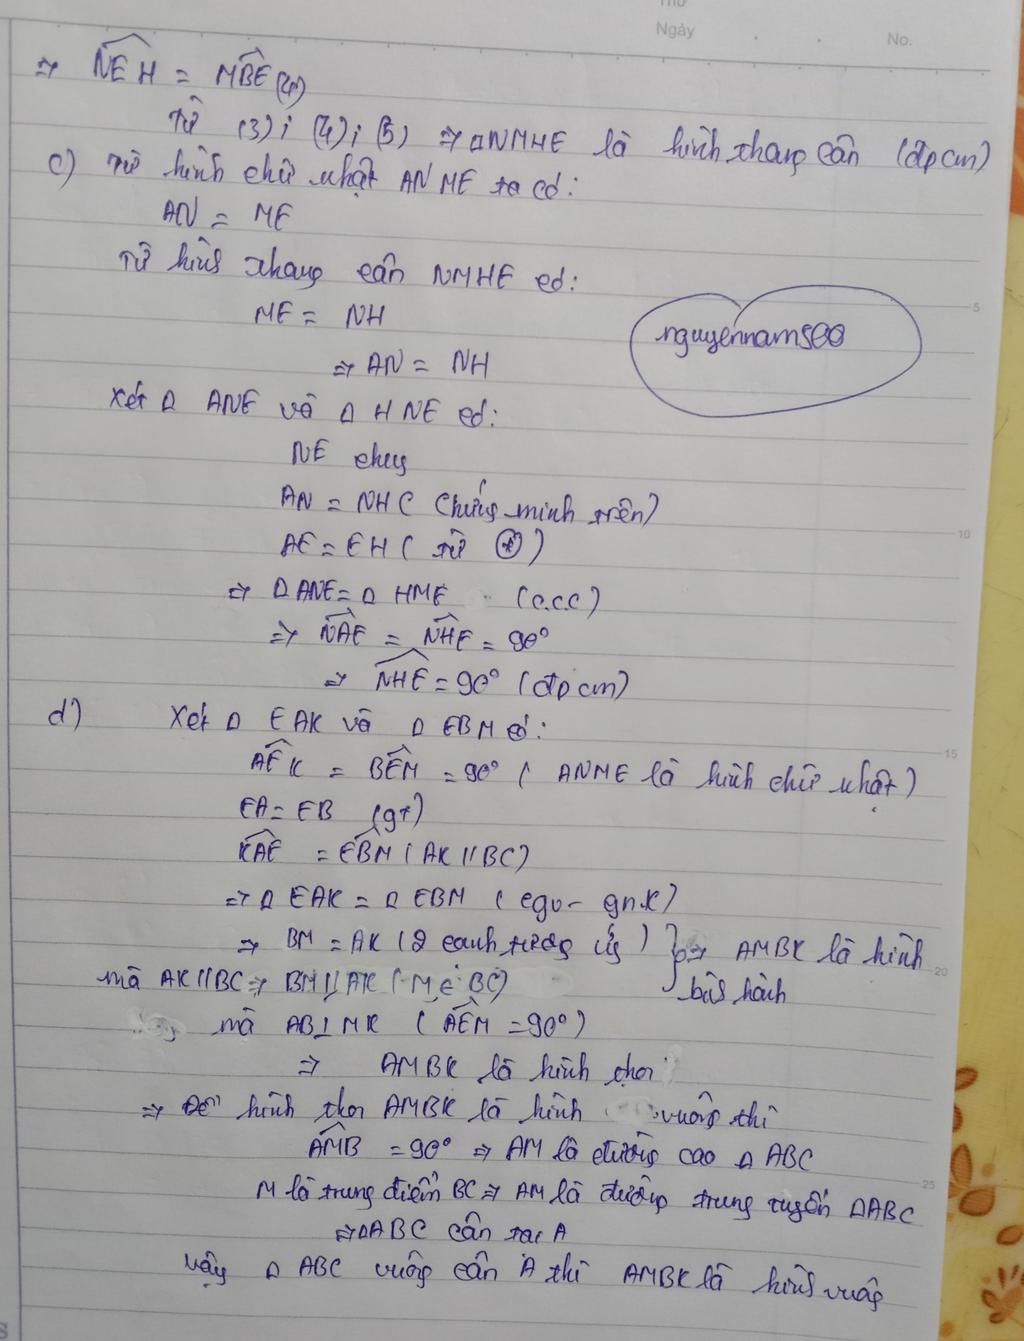 Thứ
Ngày No.
=> NEH = MBE (4)
Từ (3); (4); (5) => ◻NMHE là hình thang cân (đpcm)
c) Từ hình chữ nhật ANME ta có:
AN = ME
Từ hình thang cân NMHE có:
ME = NH
nguyennam588
=> AN = NH
Xét Δ ANE và Δ HNE có:
NE chung
AN = NH ( chứng minh trên)
AE = EH ( từ (*) )
=> Δ ANE = Δ HME (c.c.c)
=> NAE = NHE = 90°
=> NHE = 90° (đpcm)
d) Xét Δ EAK và Δ EBM có:
AEK = BEM = 90° ( ANME là hình chữ nhật)
EA = EB (gt)
KAE = EBM ( AK // BC)
=> Δ EAK = Δ EBM ( cgv - gn.k)
=> BM = AK (2 cạnh tương ứng ) } => AMBK là hình
mà AK // BC => BM // AK ( M ∈ BC) bình hành
mà AB ⊥ MK ( AEM = 90°)
=> AMBK là hình thoi
=> Để hình thoi AMBK là hình vuông thì
AMB = 90° => AM là đường cao Δ ABC
M là trung điểm BC => AM là đường trung tuyến ΔABC
=> ΔABC cân tại A
Vậy Δ ABC vuông cân A thì AMBK là hình vuông
5
10
15
20
25